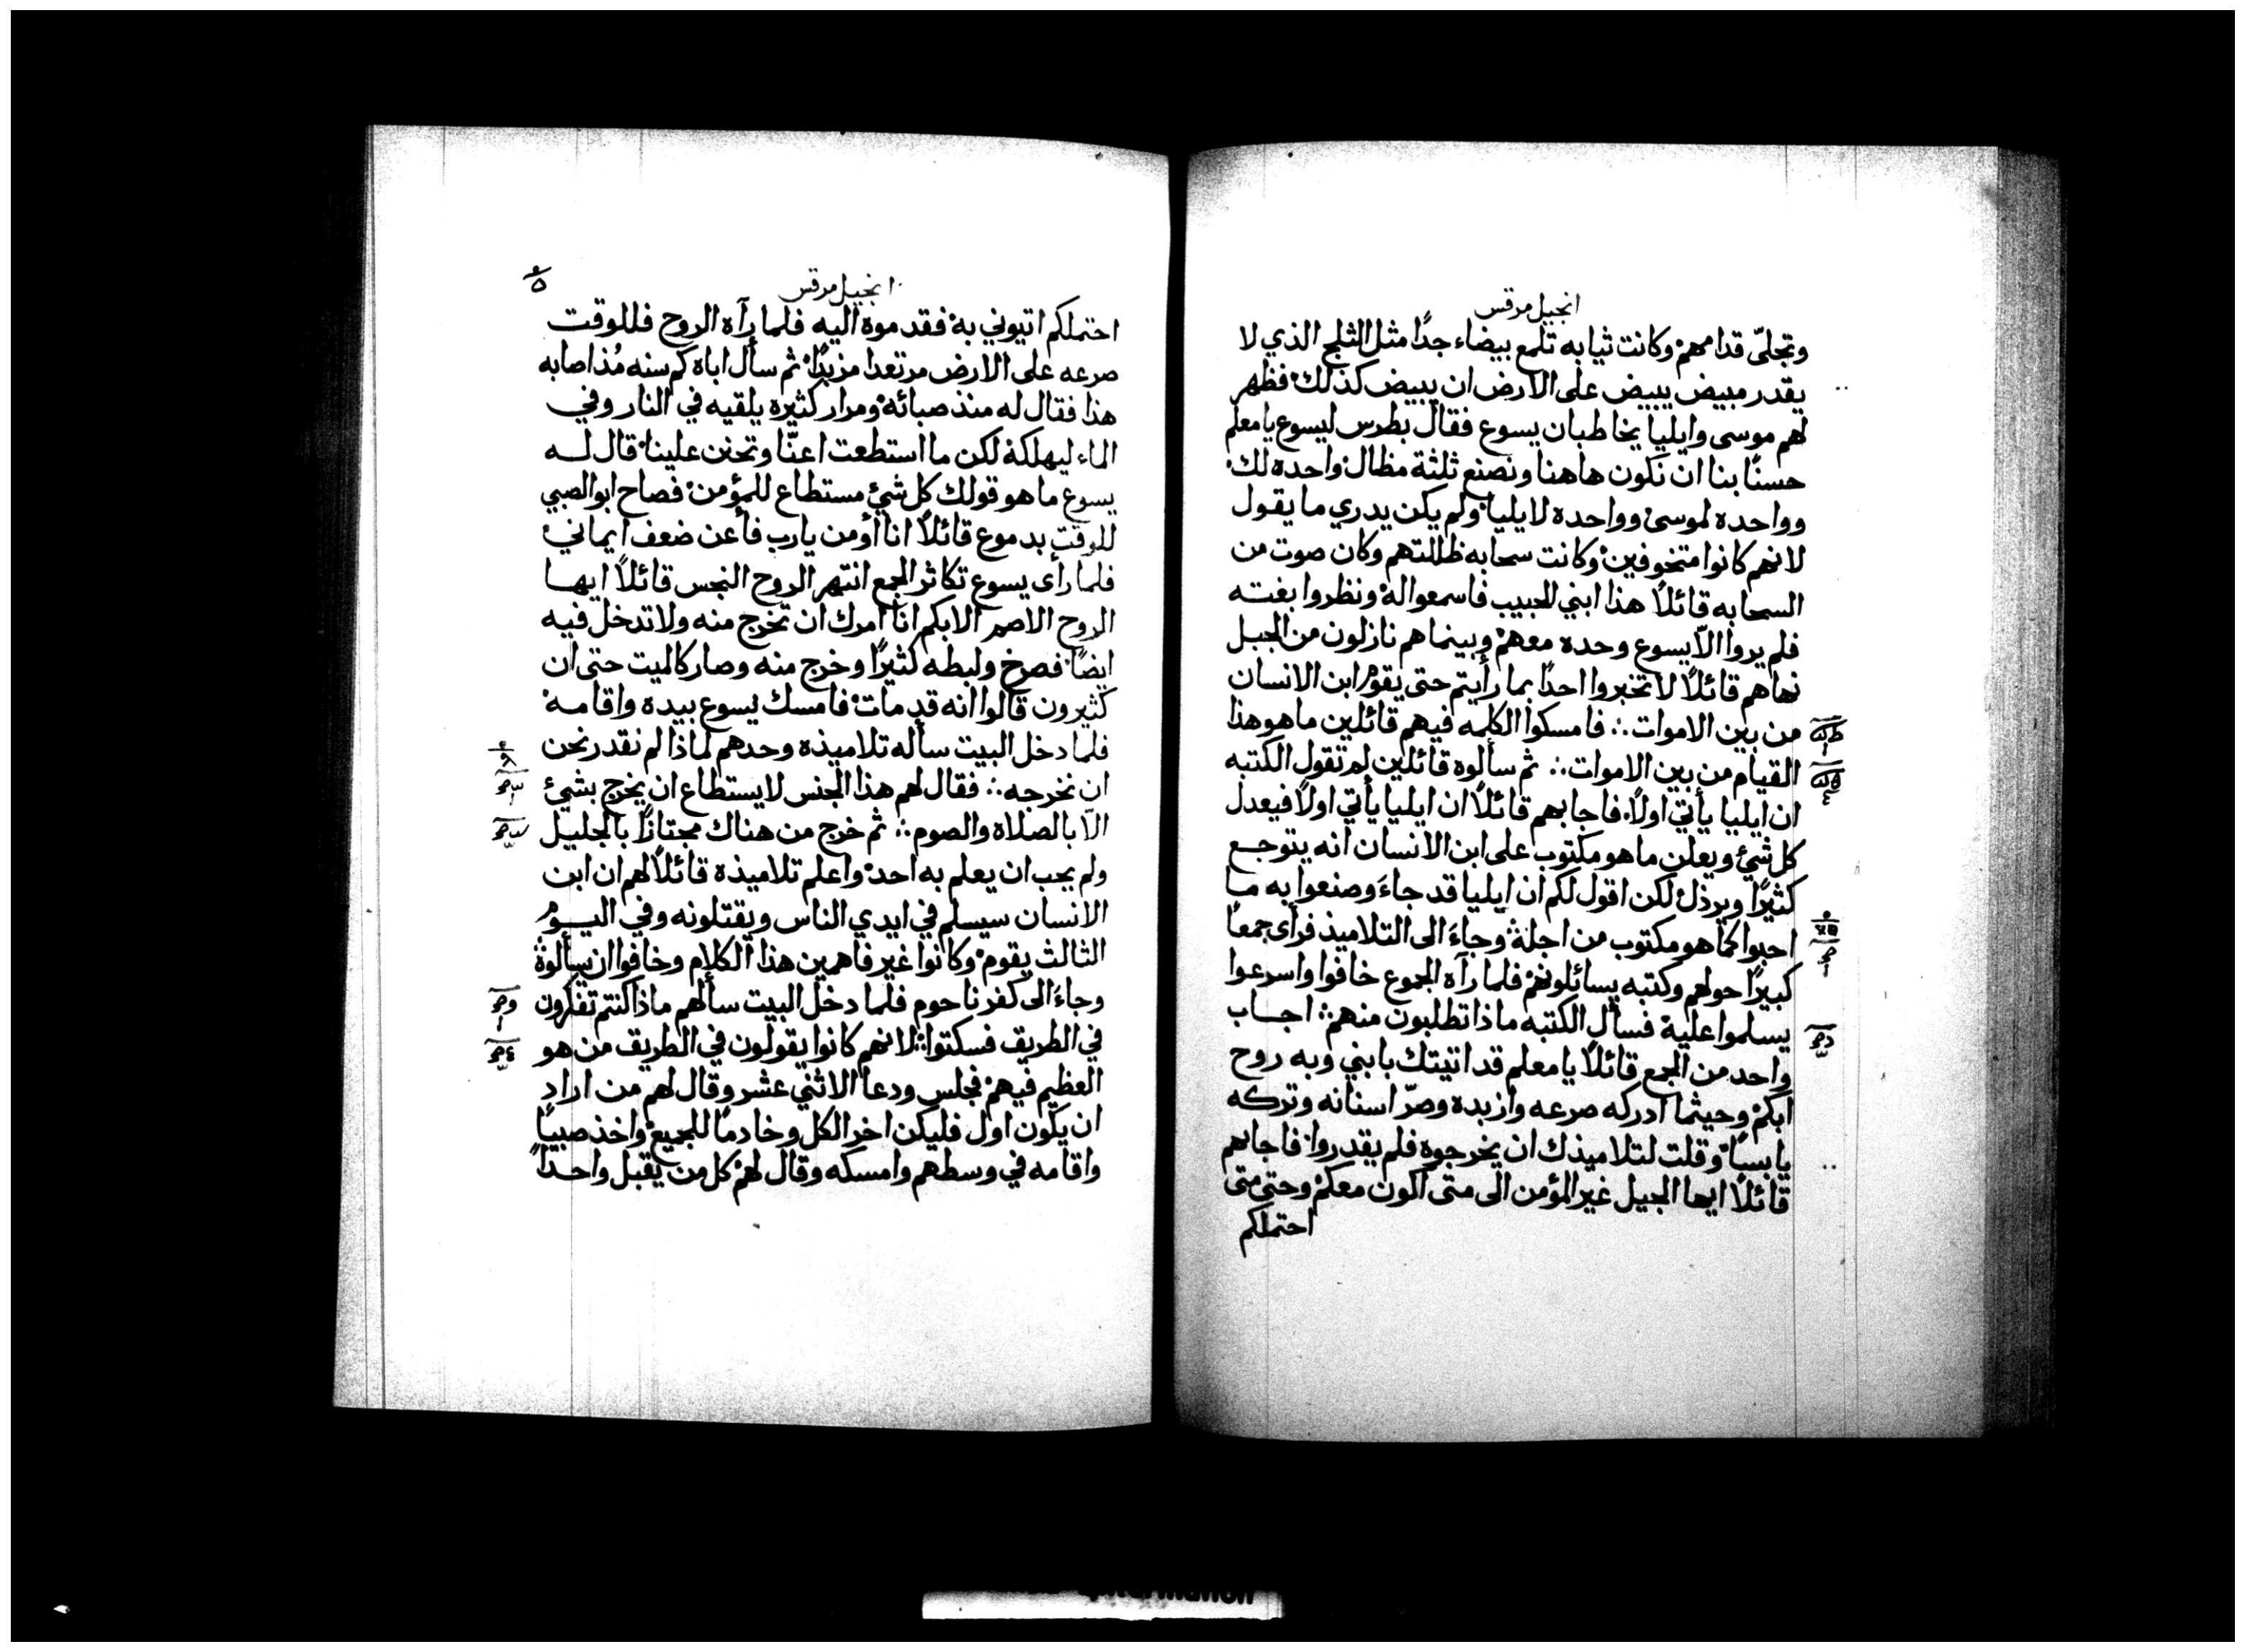 انجيل مرقس
وتجلّى قدامهم وكانت ثيابه تلمع بيضاء جدًا مثل الثلج الذي لا
يقدر مبيض يبيض على الارض ان يبيض كذلك فظهر
لهم موسى وايليا يخاطبان يسوع فقال بطرس ليسوع يا معلم
حسنًا بنا ان نكون هاهنا ونصنع ثلثة مظال واحده لك
وواحده لموسى وواحده لايليا ولم يكن يدري ما يقول
لانهم كانوا متخوفين وكانت سحابه ظللتهم وكان صوت من
السحابه قائلاً هذا ابني الحبيب فاسمعوا له ونظروا بغته
فلم يروا الاّ يسوع وحده معهم وبينما هم نازلون من الجبل
نهاهم قائلاً لا تخبروا احدًا بما رأيتم حتى يقوم ابن الانسان
من بين الاموات ∴ فامسكوا الكلمه فيهم قائلين ما هو هذا
القيام من بين الاموات ∴ ثم سألوه قائلين لم تقول الكتبه
ان ايليا يأتي اولاً فاجابهم قائلاً ان ايليا يأتي اولاً فيعدل
كل شئ ويعلن ما هو مكتوب على ابن الانسان انه يتوجع
كثيرًا ويرذل لكن اقول لكم ان ايليا قد جاءَ وصنعوا به ما
احبوا كما هو مكتوب من اجلة وجاءَ الى التلاميذ فرأى جمعًا
كبيرًا حولهم وكتبه يسائلونهم فلما رآه الجموع خافوا واسرعوا
يسلموا علية فسأل الكتبه ماذا تطلبون منهم ∴ اجاب
واحد من الجمع قائلاً يا معلم قد اتيتك بابني وبه روح
ابكم وحيثما ادركه صرعه وازبده وصرّ اسنانه وتركه
يابسًا وقلت لتلاميذك ان يخرجوه فلم يقدروا فاجابهم
قائلاً ايها الجيل غير المؤمن الى متى اكون معكم وحتى متى
احتملكم
انجيل مرقس
احتملكم اتيوني به فقدموه اليه فلما رآه الروح فللوقت
صرعه على الارض مرتعدا مزبدًا ثم سأل اباه كم سنه مُذ اصابه
هذا فقال له منذ صبائه ومرار كثيره يلقيه في النار وفي
الماء ليهلكة لكن ما استطعت اعنّا وتحنن علينا قال له
يسوع ما هو قولك كل شئ مستطاع للمؤمن فصاح ابو الصبي
للوقت بدموع قائلاً انا أومن يارب فأعن ضعف ايماني
فلما رأى يسوع تكاثر الجمع انتهر الروح النجس قائلاً ايها
الروح الاصم الابكم انا آمرك ان تخرج منه ولا تدخل فيه
ايضًا فصرخ ولبطه كثيرًا وخرج منه وصار كالميت حتى ان
كثيرون قالوا انه قد مات فامسك يسوع بيده واقامه
فلما دخل البيت سأله تلاميذه وحدهم لماذا لم نقدر نحن
ان نخرجه ∴ فقال لهم هذا الجنس لا يستطاع ان يخرج بشئ
الاّ بالصلاه والصوم ∴ ثم خرج من هناك مجتازًا بالجليل
ولم يحب ان يعلم به احد واعلم تلاميذه قائلاً لهم ان ابن
الانسان سيسلم في ايدي الناس ويقتلونه وفي اليوم
الثالث يقوم وكانوا غير فاهمين هذا الكلام وخافوا ان يسألوة
وجاءَ الى كفرناحوم فلما دخل البيت سألهم ماذا كنتم تفكرون
في الطريق فسكتوا ∴ لانهم كانوا يقولون في الطريق من هو
العظيم فيهم فجلس ودعا الاثني عشر وقال لهم من اراد
ان يكون اول فليكن اخر الكل وخادمًا للجميع واخذ صبيًا
واقامه في وسطهم وامسكه وقال لهم كل من يقبل واحدًا